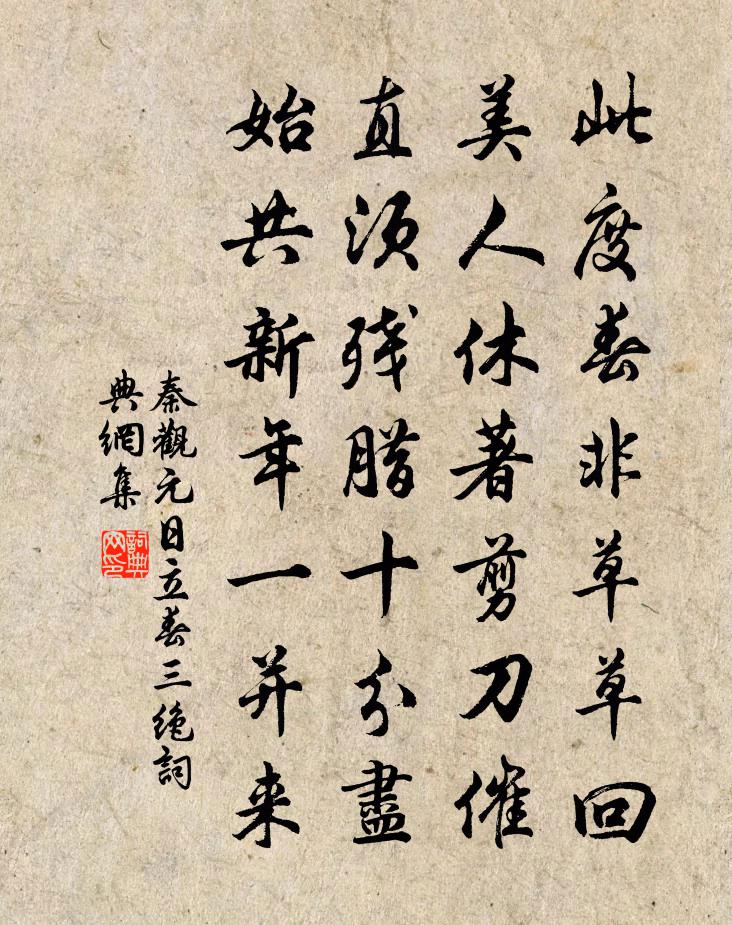 此度春非草草回
美人休著剪刀催
直须残腊十分盡
始共新年一并来
秦觀元日立春三绝詞
典網集
詞典
网印